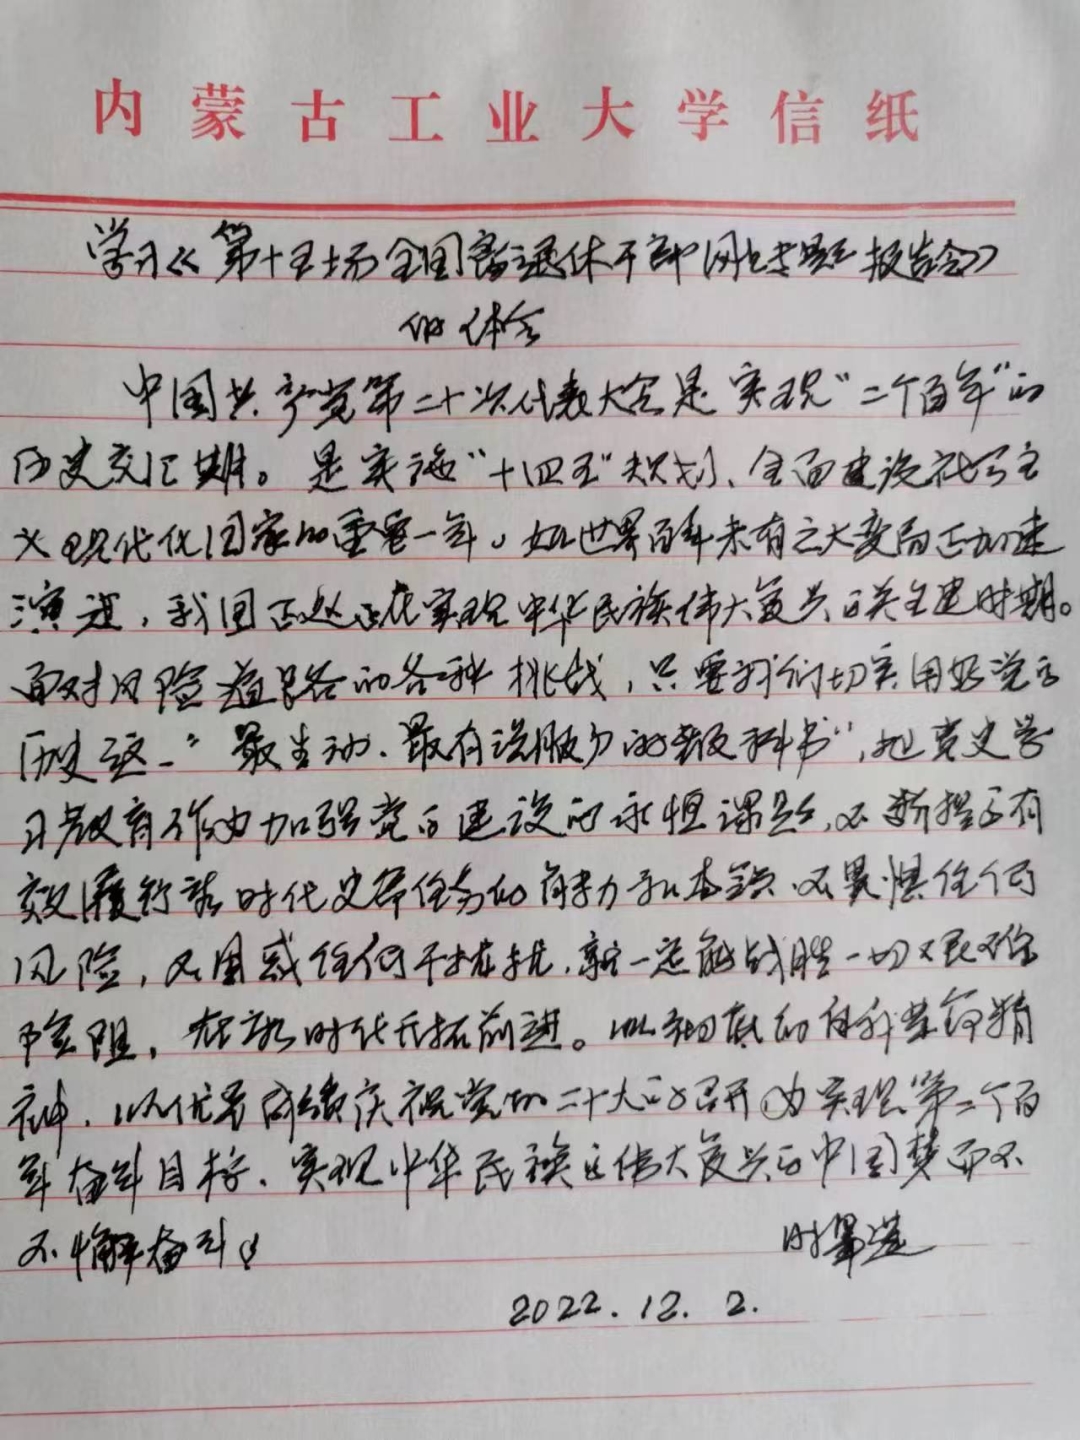 内蒙古工业大学信纸
学习《第十五场全国离退休干部网上专题报告会》
的体会
中国共产党第二十次代表大会是实现“二个百年”的
历史交汇期。是实施“十四五”规划、全面建设社会主
义现代化国家的重要一年。如世界百年未有之大变局正加速
演进，我国正处正在实现中华民族伟大复兴的关键时期。
面对风险道路的各种挑战，只要我们切实用好党的
历史这一“最生动、最有说服力的教科书”，把党史学
习教育作为加强党的建设的永恒课题，不断提高有
效履行新时代史命任务的能力和本领，不畏惧任何
风险，不困惑任何干扰，就一定能战胜一切艰难
险阻，在新时代开拓前进。以彻底的自我革命精
神，以优异成绩庆祝党的二十大的召开，为实现第二个百
年奋斗目标、实现中华民族的伟大复兴的中国梦而不
不懈奋斗。
2022.12.2.